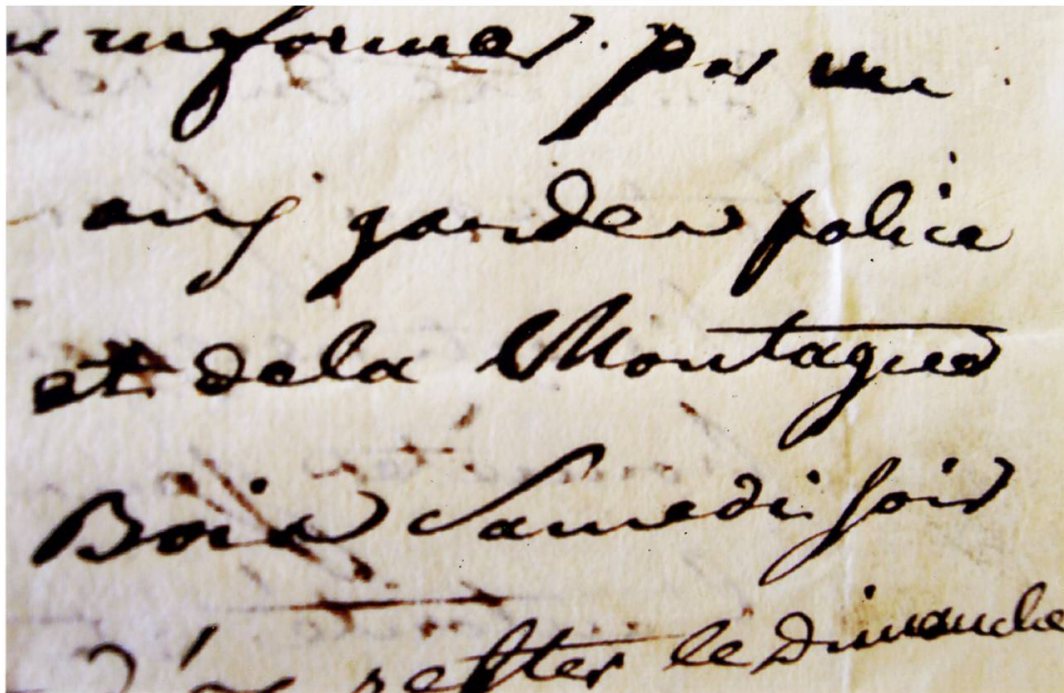 informer par un
aux gardes police
et dela Montagne
Bois Samedi soir
d'y rester le Dimanche